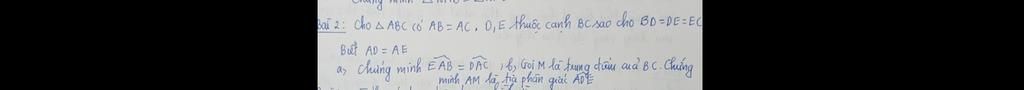 Chứng minh
Bài 2: Cho △ ABC có AB = AC, D, E thuộc cạnh BC sao cho BD = DE = EC
Biết AD = AE
a, Chứng minh EAB = DAC , b, Gọi M là trung điểm của BC. Chứng
minh AM là tia phân giác ADE